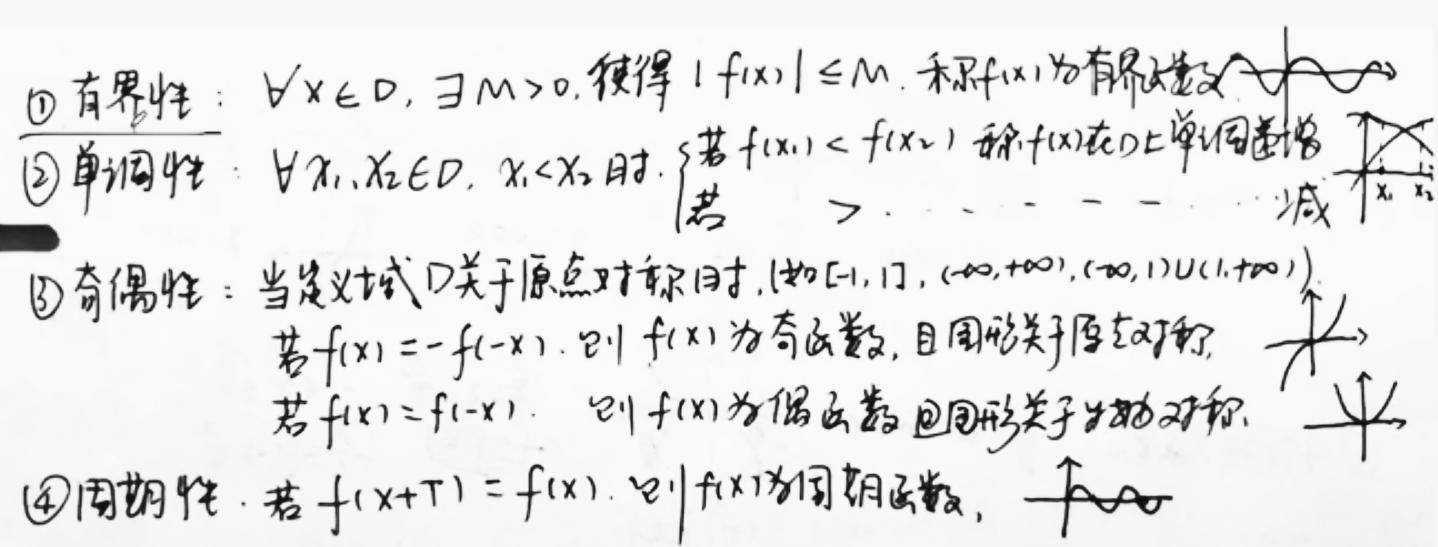 ① 有界性： ∀x∈D, ∃M>0, 使得 |f(x)|≤M. 称f(x)为有界函数
② 单调性： ∀x₁, x₂∈D, x₁<x₂时. { 若 f(x₁) < f(x₂) 称f(x)在D上单调递增
若 > . . . - - - . . . 减
x₁ x₂
③ 奇偶性： 当定义域D关于原点对称时, (如[-1, 1], (-∞,+∞), (-∞, 1)∪(1,+∞)).
若f(x) = -f(-x). 则 f(x)为奇函数, 且图形关于原点对称,
若f(x) = f(-x). 则 f(x)为偶函数 且图形关于y轴对称.
④ 周期性. 若 f(x+T) = f(x). 则 f(x)为周期函数,